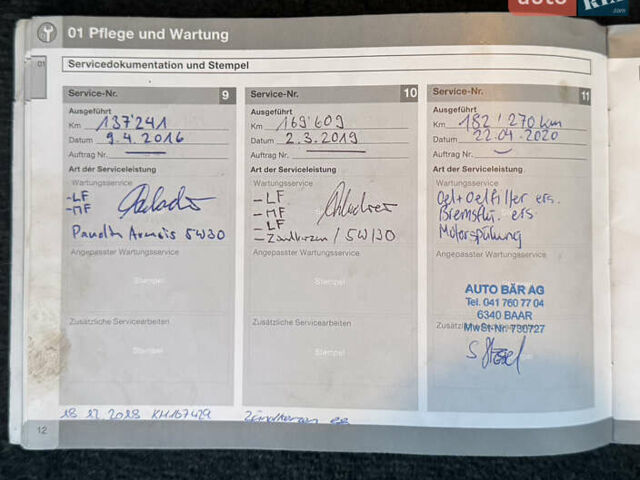 01 Pflege und Wartung
01
Servicedokumentation und Stempel
Service-Nr. 9
Ausgeführt
Km 137'241
Datum 9.4.2016
Auftrag Nr.
Art der Serviceleistung
Wartungsservice
-LF
-MF
5W30
Angepasster Wartungsservice
Stempel
Zusätzliche Servicearbeiten
Stempel
Service-Nr. 10
Ausgeführt
Km 169'609
Datum 2.3.2019
Auftrag Nr.
Art der Serviceleistung
Wartungsservice
-LF
-MF
-LF
-Zündkerzen / 5W30
Angepasster Wartungsservice
Stempel
Zusätzliche Servicearbeiten
Stempel
Service-Nr. 11
Ausgeführt
Km 182'270 km
Datum 22.04.2020
Auftrag Nr.
Art der Serviceleistung
Wartungsservice
Oel+Oelfilter ers.
Bremsflü. ers.
Motorspülung
Angepasster Wartungsservice
AUTO BÄR AG
Tel. 041 760 77 04
6340 BAAR
MwSt-Nr. 730727
18 12 2018 KM167429 Zündkerzen
12
auto
.com